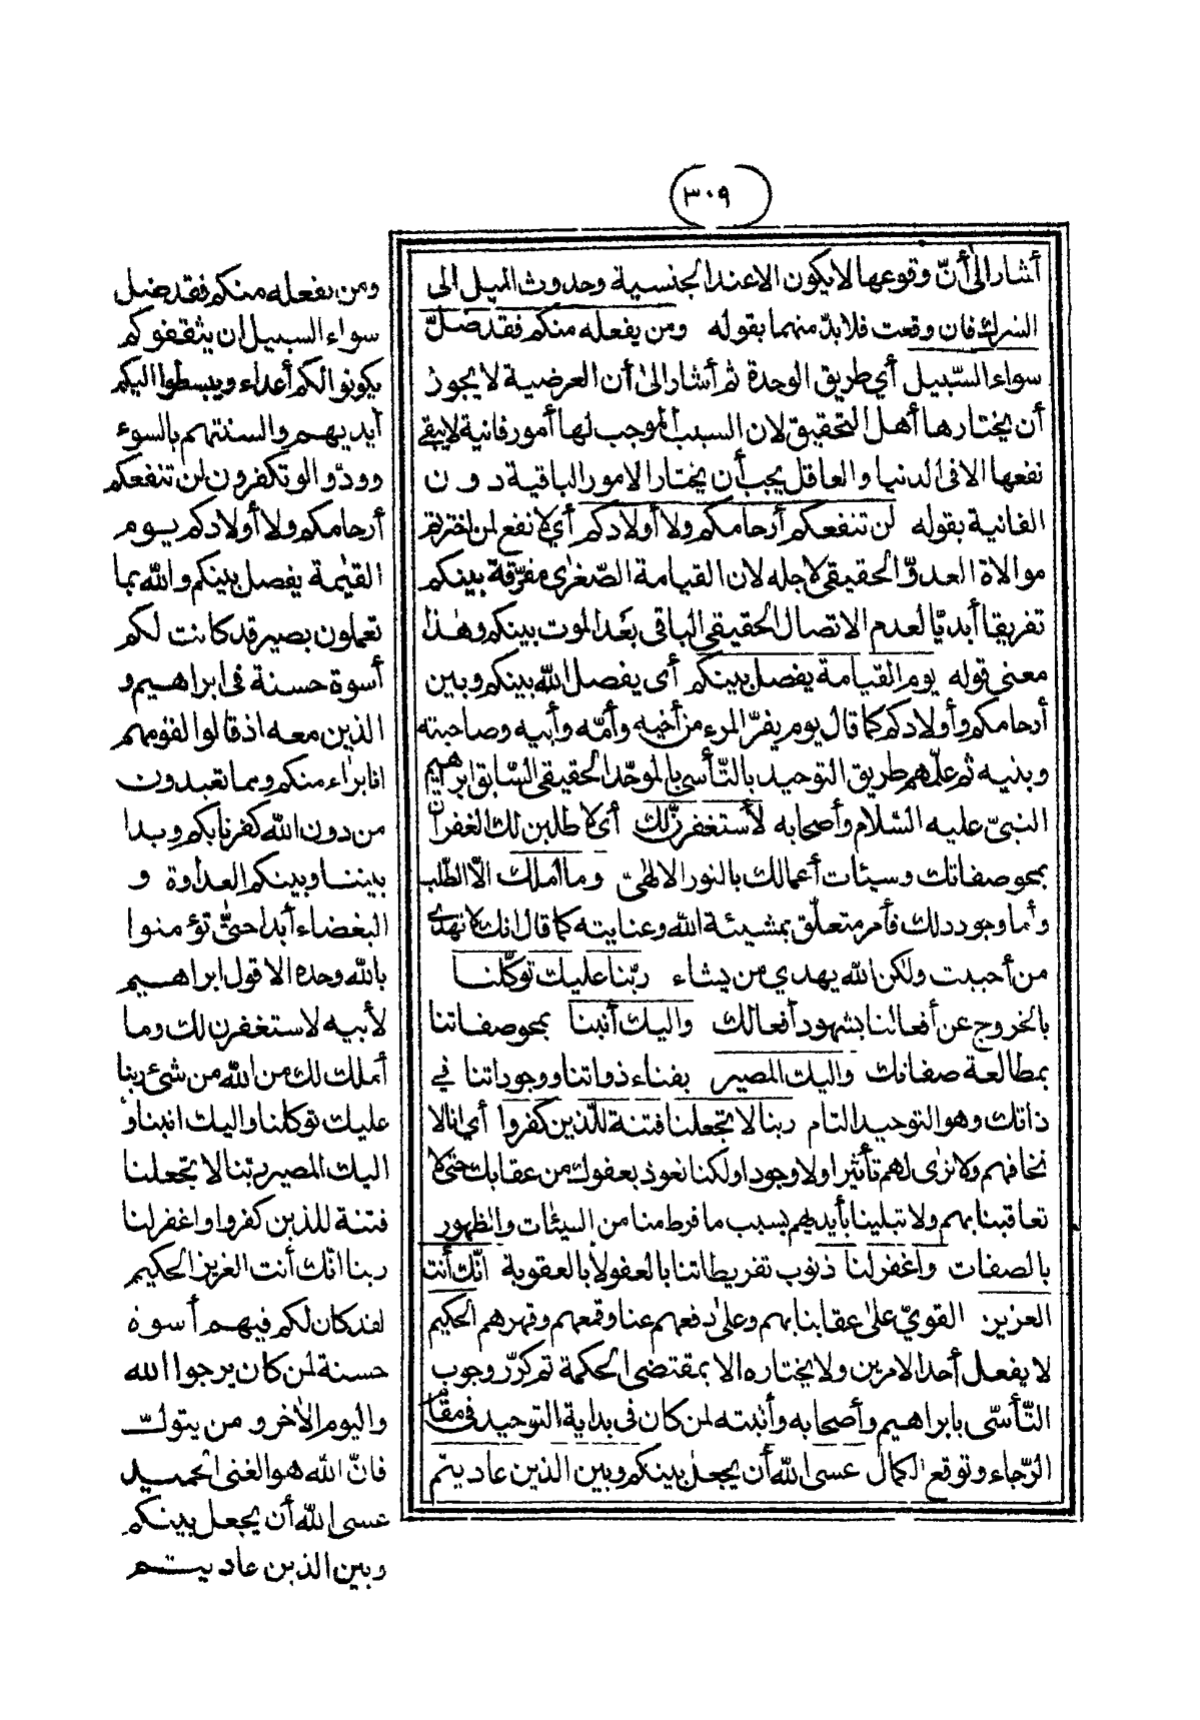 ٣٠٩
أشار الىٰ أنّ وقوعها لا يكون الا عند الجنسية وحدوث الميل الى
الشرك فان وقعت فلا بدّ منهما بقوله ومن يفعله منكم فقد ضلّ
سواء السّبيل أي طريق الوحدة ثم أشار الىٰ أن العرضية لا يجوز
أن يختارها أهل التحقيق لان السبب الموجب لها أمور فانية لا يبقى
نفعها الا في الدنيا والعاقل يجب أن يختار الامور الباقية دون
الفانية بقوله لن تنفعكم أرحامكم ولا أولادكم أي لا نفع لمن اخترتم
موالاة العدوّ الحقيقي لاجله لان القيامة الصّغرىٰ مفرّقة بينكم
تفريقا أبديّا لعدم الاتصال الحقيقي الباقي بعد الموت بينكم وهٰذا
معنى قوله يوم القيامة يفصل بينكم أى يفصل الله بينكم وبين
أرحامكم وأولادكم كما قال يوم يفرّ المرء من أخيه وأمّه وأبيه وصاحبته
وبنيه ثم علّمهم طريق التوحيد بالتّأسي بالموحّد الحقيقي السّابق ابرهيم
النبيّ عليه السّلام وأصحابه لأستغفرنّ لك أي لا طلبن لك الغفران
بمحو صفاتك وسيئات أعمالك بالنور الالهيّ وما أملك الّا الطّلب
وأما وجود ذلك فأمر متعلّق بمشيئة الله وعنايته كما قال انك لا تهدى
من أحببت ولكن الله يهدي من يشاء ربّنا عليك توكّلنا
بالخروج عن أفعالنا بشهود أفعالك واليك أنبنا بمحو صفاتنا
بمطالعة صفاتك واليك المصير بفناء ذواتنا ووجوداتنا في
ذاتك وهو التوحيد التام ربنا لا تجعلنا فتنة للّذين كفروا أي انا لا
نخافهم ولا نرٰى لهم تأثيرا ولا وجودا ولكنا نعوذ بعفوك من عقابك حتى لا
تعاقبنا بهم ولا تبلينا بأيديهم بسبب ما فرط منا من السيئات والظهور
بالصفات واغفر لنا ذنوب تفريطاتنا بالعفو لا بالعقوبة انّك أنت
العزيز القويّ علىٰ عقابنا بهم وعلىٰ دفعهم عنا وقمعهم وقهرهم الحكيم
لا يفعل أحد الامرين ولا يختاره الا بمقتضى الحكمة ثم كرّر وجوب
التّأسّى بابراهيم وأصحابه وأثبته لمن كان فى بداية التوحيد فى مقام
الرّجاء وتوقع الكمال عسى الله أن يجعل بينكم وبين الذين عاديتم
ومن يفعله منكم فقد ضل
سواء السبيل ان يثقفوكم
يكونوا لكم أعداء ويبسطوا اليكم
أيديهم والسنتهم بالسوء
وودّوا لو تكفرون لن تنفعكم
أرحامكم ولا أولادكم يوم
القيٰمة يفصل بينكم والله بما
تعملون بصير قد كانت لكم
أسوة حسنة فى ابراهيم و
الذين معه اذ قالوا لقومهم
انا برآء منكم ومما تعبدون
من دون الله كفرنا بكم وبدا
بيننا وبينكم العداوة و
البغضاء أبدا حتّى تؤمنوا
بالله وحده الا قول ابراهيم
لأبيه لاستغفرن لك وما
أملك لك من الله من شئ ربنا
عليك توكلنا واليك انبنا و
اليك المصير ربّنا لا تجعلنا
فتنة للذين كفروا واغفر لنا
ربنا انّك أنت العزيز الحكيم
لقد كان لكم فيهم أسوة
حسنة لمن كان يرجوا الله
واليوم الأخر ومن يتولّ
فانّ الله هو الغنى الحميد
عسى الله أن يجعل بينكم
وبين الذين عاديتم